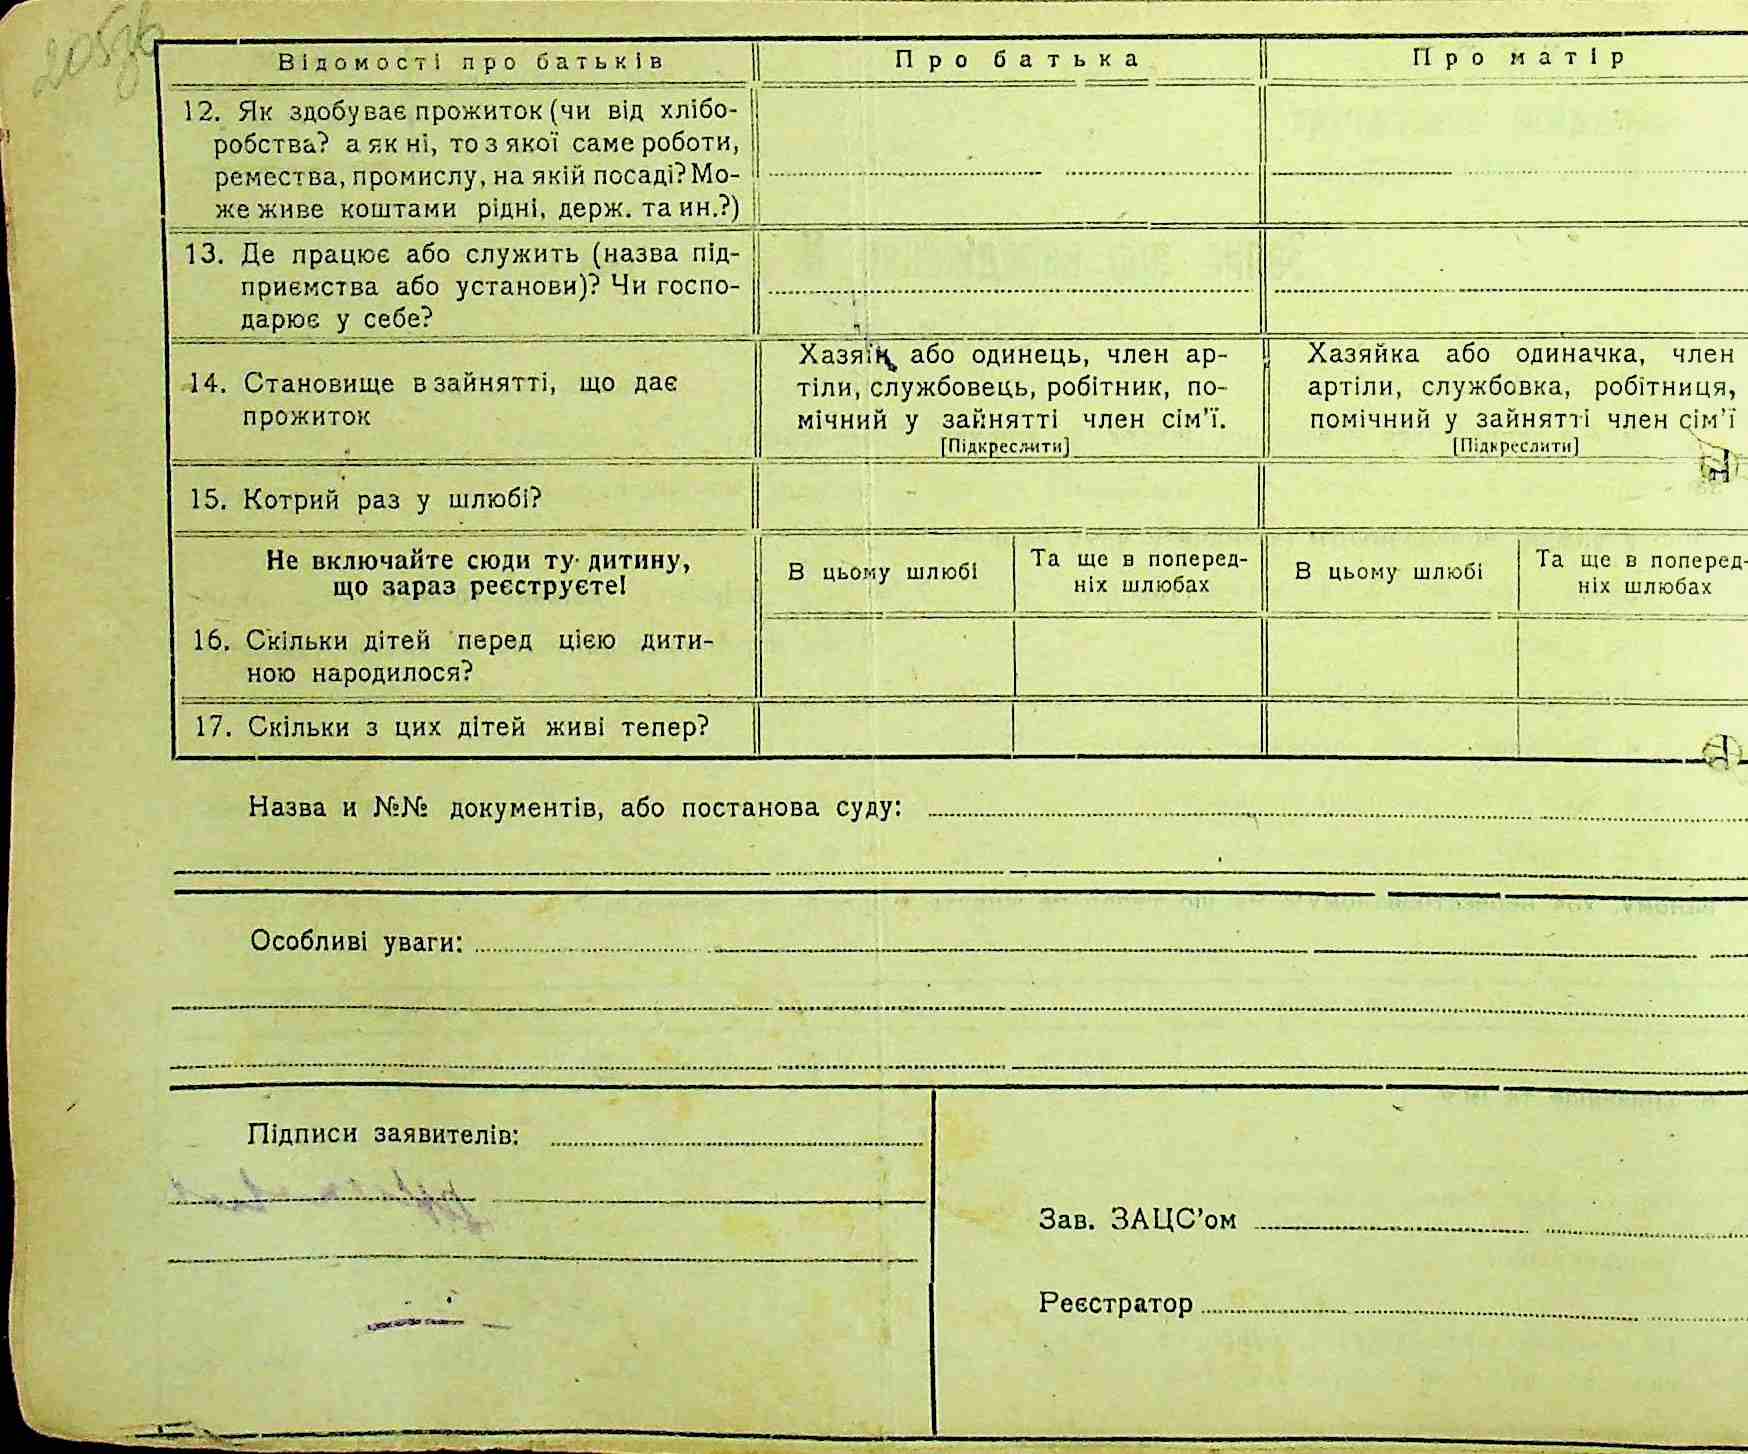 Відомості про батьків
Про батька
Про матір
12. Як здобуває прожиток (чи від хлібо-
робства? а як ні, то з якої саме роботи,
ремества, промислу, на якій посаді? Мо-
же живе коштами рідні, держ. та ин.?)
13. Де працює або служить (назва під-
приємства або установи)? Чи госпо-
дарює у себе?
14. Становище в зайнятті, що дає
прожиток
Хазяїн, або одинець, член ар-
тіли, службовець, робітник, по-
мічний у зайнятті член сім'ї.
[Підкреслити]
Хазяйка або одиначка, член
артіли, службовка, робітниця,
помічний у зайнятті член сім'ї
[Підкреслити]
15. Котрий раз у шлюбі?
Не включайте сюди ту дитину,
що зараз реєструєте!
В цьому шлюбі
Та ще в поперед-
ніх шлюбах
В цьому шлюбі
Та ще в поперед-
ніх шлюбах
16. Скільки дітей перед цією дити-
ною народилося?
17. Скільки з цих дітей живі тепер?
Назва и №№ документів, або постанова суду:
Особливі уваги:
Підписи заявителів:
Зав. ЗАЦС'ом
Реєстратор